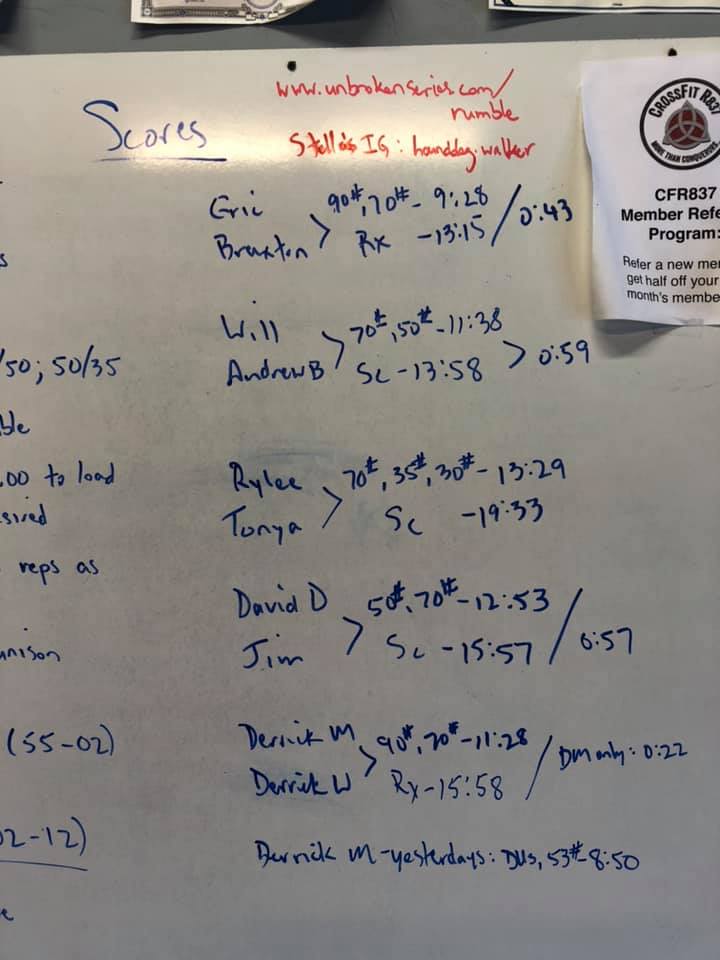 Scores
www.unbrokenseries.com/
rumble
Stella's IG: hounddog_walker
CROSSFIT R837
MORE THAN CONQUERORS
CFR837
Member Refe
Program:
Refer a new me
get half off your
month's membe
Eric 90#, 70# - 9:28 / 0:43
Braxton > Rx - 13:15
Will > 70#, 50# - 11:38
Andrew B Sc - 13:58 > 0:59
/50; 50/35
ble
:00 to load
sired
reps as
nison
(55-02)
02-12)
e
s
Rylee > 70#, 35#, 30# - 13:29
Tonya Sc - 19:33
David D > 50#, 70# - 12:53
Jim Sc - 15:57 / 0:57
Derrick M > 90#, 70# - 11:28
Derrick W Rx - 15:58 / DM only: 0:22
Derrick M - yesterdays: DUs, 53# - 8:50